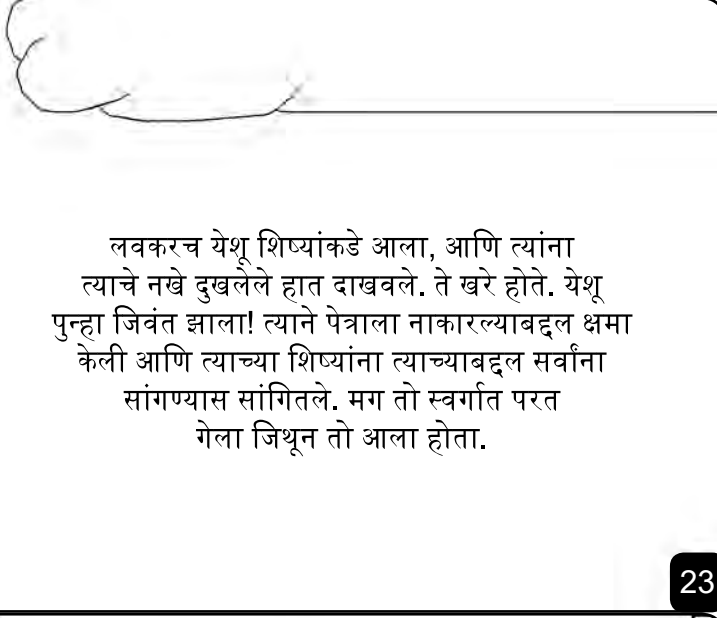 लवकरच येशू शिष्यांकडे आला, आणि त्यांना
त्याचे नखे दुखलेले हात दाखवले. ते खरे होते. येशू
पुन्हा जिवंत झाला! त्याने पेत्राला नाकारल्याबद्दल क्षमा
केली आणि त्याच्या शिष्यांना त्याच्याबद्दल सर्वांना
सांगण्यास सांगितले. मग तो स्वर्गात परत
गेला जिथून तो आला होता.
23